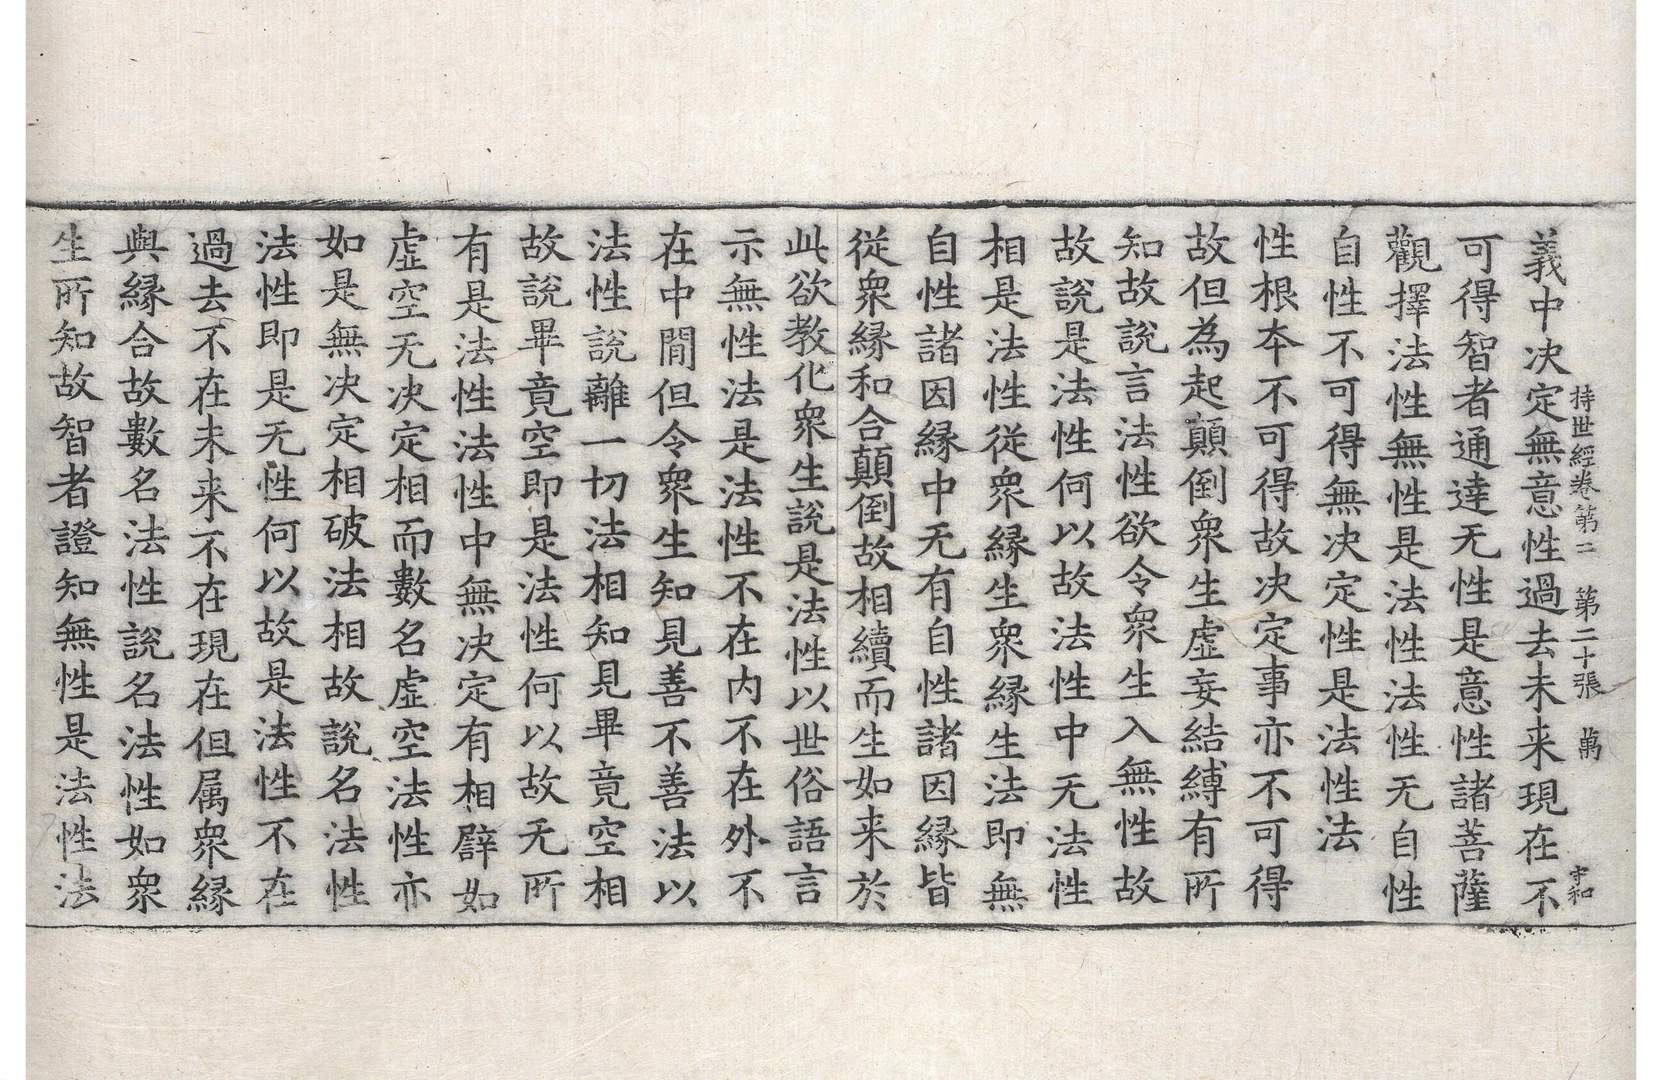 持世經卷第二 第二十張 萬 守和
義中决定無意性過去未来現在不
可得智者通達无性是意性諸菩薩
觀擇法性無性是法性法性无自性
自性不可得無决定性是法性法
性根本不可得故决定事亦不可得
故但為起顛倒衆生虛妄結縛有所
知故說言法性欲令衆生入無性故
故說是法性何以故法性中无法性
相是法性從衆縁生衆縁生法即無
自性諸因縁中无有自性諸因縁皆
從衆縁和合顛倒故相續而生如来於
此欲教化衆生說是法性以世俗語言
示無性法是法性不在内不在外不
在中閒但令衆生知見善不善法以
法性說離一切法相知見畢竟空相
故說畢竟空即是法性何以故无所
有是法性法性中無决定有相譬如
虛空无决定相而數名虛空法性亦
如是無决定相破法相故說名法性
法性即是无性何以故是法性不在
過去不在未来不在現在但属衆縁
與縁合故數名法性說名法性如衆
生所知故智者證知無性是法性法